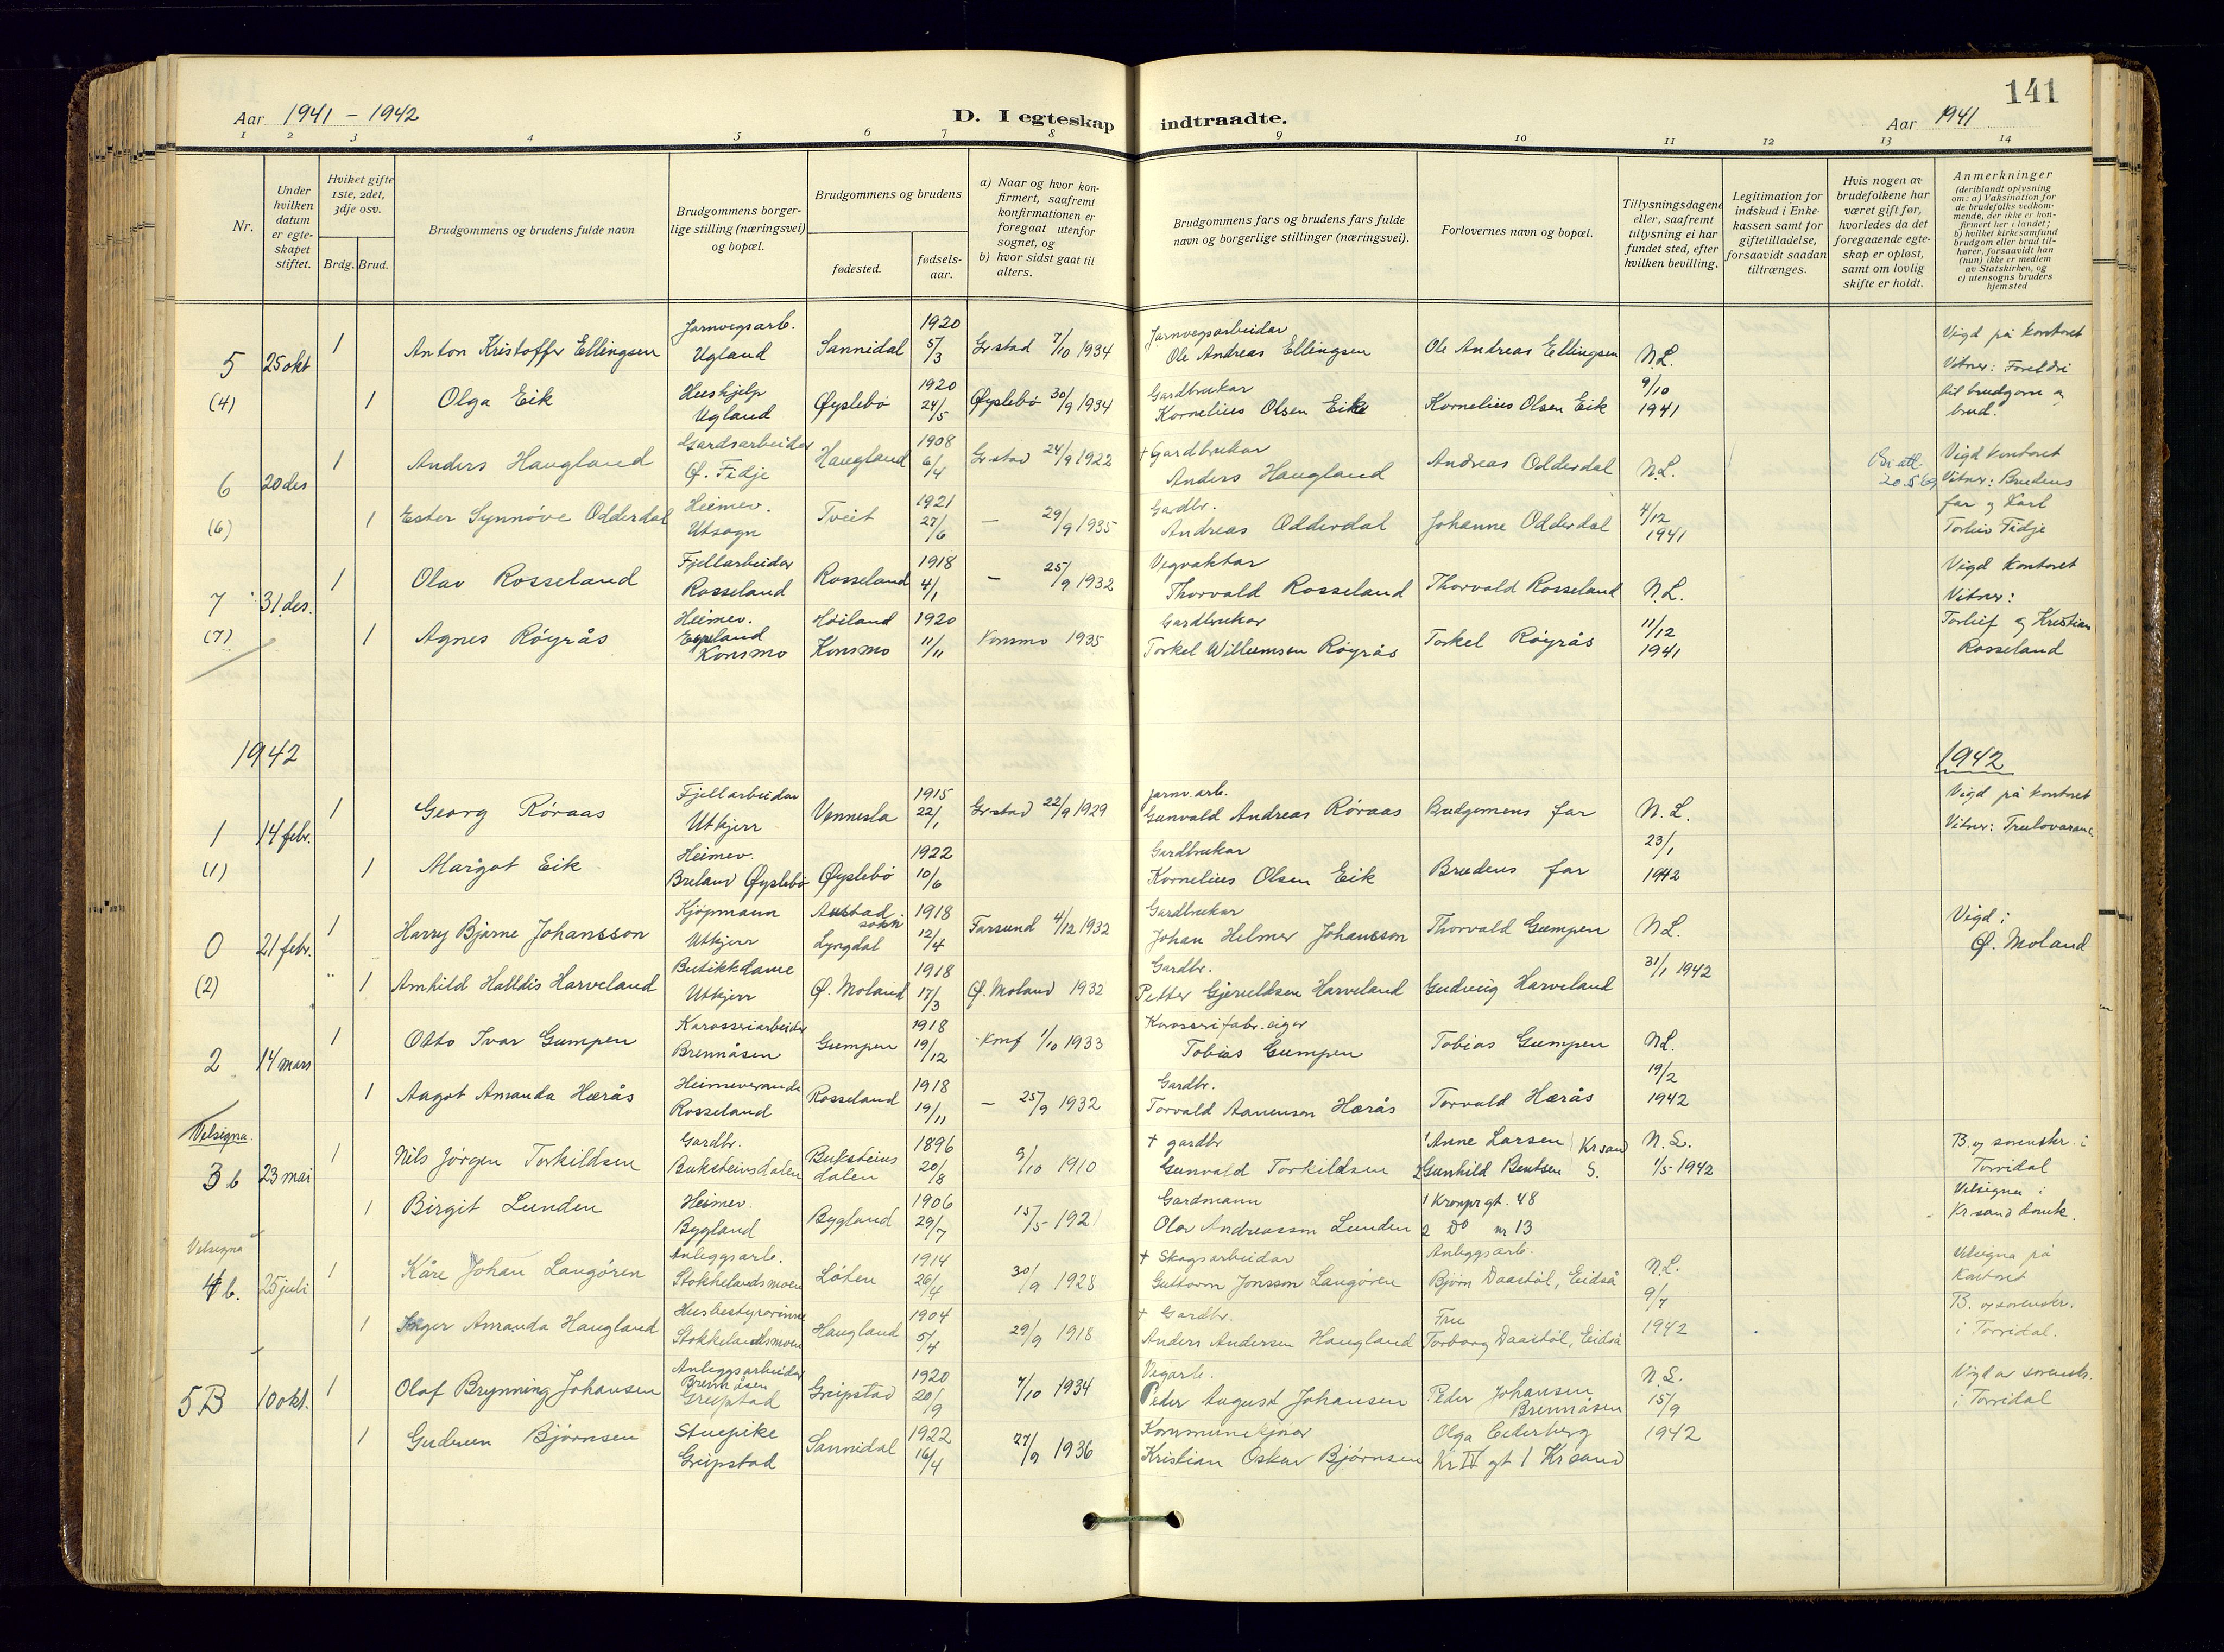 141
Aar 1941 - 1942
D. I egteskap indtraadte.
Aar 1941
1 2 3 4 5 6 7 8 9 10 11 12 13 14
Nr.
Under hvilken datum er egteskapet stiftet.
Hviket gifte 1ste, 2det, 3dje osv.
Brdg. Brud.
Brudgommens og brudens fulde navn
Brudgommens borgerlige stilling (næringsvei) og bopæl.
Brudgommens og brudens
fødested.
fødsels-aar.
a) Naar og hvor konfirmert, saafremt konfirmationen er foregaat utenfor sognet, og
b) hvor sidst gaat til alters.
Brudgommens fars og brudens fars fulde navn og borgerlige stillinger (næringsvei).
Forlovernes navn og bopæl.
Tillysningsdagene eller, saafremt tillysning ei har fundet sted, efter hvilken bevilling.
Legitimation for indskud i Enkekassen samt for giftetilladelse, forsaavidt saadan tiltrænges.
Hvis nogen av brudefolkene har været gift før, hvorledes da det foregaaende egteskap er opløst, samt om lovlig skifte er holdt.
Anmerkninger
(deriblandt oplysning om: a) Vaksination for de brudefolks vedkommende, der ikke er konfirmert her i landet; b) hvilket kirkesamfund brudgom eller brud tilhører, forsaavidt han (hun) ikke er medlem av Statskirken, og c) utensogns bruders hjemsted
5 25 okt 1 Anton Kristoffer Ellingsen Jarnvegsarb. Ugland Sannidal 1920 5/3 Gr.stad 7/10 1934 Jarnvegsarbeidar Ole Andreas Ellingsen Ole Andreas Ellingsen N.L. Vigd på kontoret
(4) 1 Olga Eik Hushjelp Ugland Øyslebø 1920 24/5 Øyslebø 30/9 1934 Gardbrukar Kornelius Olsen Eik Kornelius Olsen Eik 9/10 1941 Vitner: Foreldri til brudgom og brud.
6 20 des 1 Anders Haugland Gardsarbeidar Ø. Fidje Haugland 1908 6/4 Gr.stad 24/9 1922 + Gardbrukar Anders Haugland Andreas Odderdal N.L. 20.5.69 Vigd kontoret
(6) 1 Ester Synnøve Odderdal Heimev. Utsogn Tveit 1921 27/6 — 29/9 1935 Gardbr. Andreas Odderdal Johanne Odderdal 4/12 1941 Vitner: Brudens far og Karl Torleiv Fidje
7 31 des. 1 Olav Rosseland Fjellarbeidar Rosseland Rosseland 1918 4/1 — 25/9 1932 Vegvaktar Thorvald Rosseland Thorvald Rosseland N.L. Vigd kontoret
(7) 1 Agnes Røyrås Heimev. Konsmo Høiland Konsmo 1920 11/11 Konsmo 1935 Gardbrukar Torkel Willumsen Røyrås Torkel Røyrås 11/12 1941 Vitner: Torleif og Kristian Rosseland
1942
1942
1 14 febr. 1 Georg Røraas Fjellarbeidar Utkjerr Vennesla 1915 22/1 Gr.stad 22/9 1929 jarnv.arb. Gunvald Andreas Røraas Brudgomens far N.L. Vigd på kontoret
(1) 1 Margot Eik Heimev. Breland Øyslebø Øyslebø 1922 10/6 Gardbrukar Kornelius Olsen Eik Brudens far 23/1 1942 Vitner: Trulovarane
0 21 febr. 1 Harry Bjarne Johansson Kjøpmann Utkjerr Austad sokn Lyngdal 1918 12/4 Farsund 4/12 1932 Gardbrukar Johan Helmer Johansson Thorvald Gumpen N.L. Vigd i Ø. Moland
(2) " 1 Arnhild Halldis Harveland Butikkdame Utkjerr Ø. Moland 1918 17/3 Ø. Moland 1932 Gardbr. Petter Gjeruldsen Harveland Gudveig Harveland 31/1 1942
2 14 mars 1 Otto Ivar Gumpen Karosseriarbeidar Brennåsen Gumpen 1918 19/12 Konf 1/10 1933 Karosserifabr.eigar Tobias Gumpen Tobias Gumpen N.L.
1 Aagot Amanda Hærås Heimeverande Rosseland Rosseland 1918 19/11 — 25/9 1932 Gardbr. Torvald Aanensen Hærås Torvald Hærås 19/2 1942
Velsigna.
3 b 23 mai 1 Nils Jörgen Torkildsen Gardbr. Buksteinsdalen Buksteinsdalen 1896 20/8 9/10 1910 + gardbr Gunvald Torkildsen 1 Anne Larsen 2 Gunhild Bentsen Krsand S. N.L. 1/5-1942 B. og sorenskr. i Torridal
1 Birgit Lunden Heimev. Bygland Bygland 1906 29/7 15/5-1921 Gardmann Olav Andreasson Lunden 1 Kronpr gt. 48 2 Do nr 13 Velsigna i Kr sand domk.
Velsigna
4 b. 25 juli 1 Kåre Johan Langören Anleggsarb. Stokkelandsmoen Løten 1914 26/4 30/9 1928 + Skogsarbeidar Guttorm Jonsson Langören Anleggsarb. Bjørn Daastøl, Eidså N.L. Velsigna på Kontoret
1 Inger Amanda Haugland Husbestyrerinne Stokkelandsmoen Haugland 1904 5/4 29/9 1918 + Gardbr. Anders Andersen Haugland Fru Torborg Daastøl, Eidså 9/7 1942 B. og sorenskr. i Torridal.
5 B 10 okt. 1 Olaf Brynning Johansen Anleggsarbeidar Brennåsen Greipstad Greipstad 1920 20/9 7/10 1934 Vegarb. Peder August Johansen Peder Johansen Brennåsen N.L. Vigd av sorenskr. i Torridal
1 Gudrun Bjørnsen Stuepike Greipstad Sannidal 1922 16/4 27/9 1936 Kristian Oskar Bjørnsen Olga Cederberg Kr IV gt 1 Krsand 15/9 1942